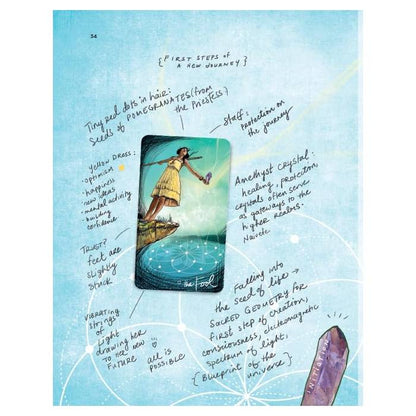 34
{FIRST STEPS OF
A NEW JOURNEY}
Tiny red dots in hair:
Seeds of POMEGRANATES (from
the Priestess)
Staff:
Protection on
the journey
yellow DRESS:
• optimism
• happiness
• new ideas
• mental activity
• building
confidence
Amethyst Crystal:
healing, protection,
crystals often serve
as gateways to the
higher realms.
TRUST?
feet are
slightly
stuck
the Fool
VIBRATING
strings
of
light
drawing her
TO her new
FUTURE
all is
POSSIBLE
Falling into
the seed of life →
SACRED GEOMETRY for
first step of creation,
consciousness, electromagnetic
spectrum of light,
{Blueprint of the
universe}